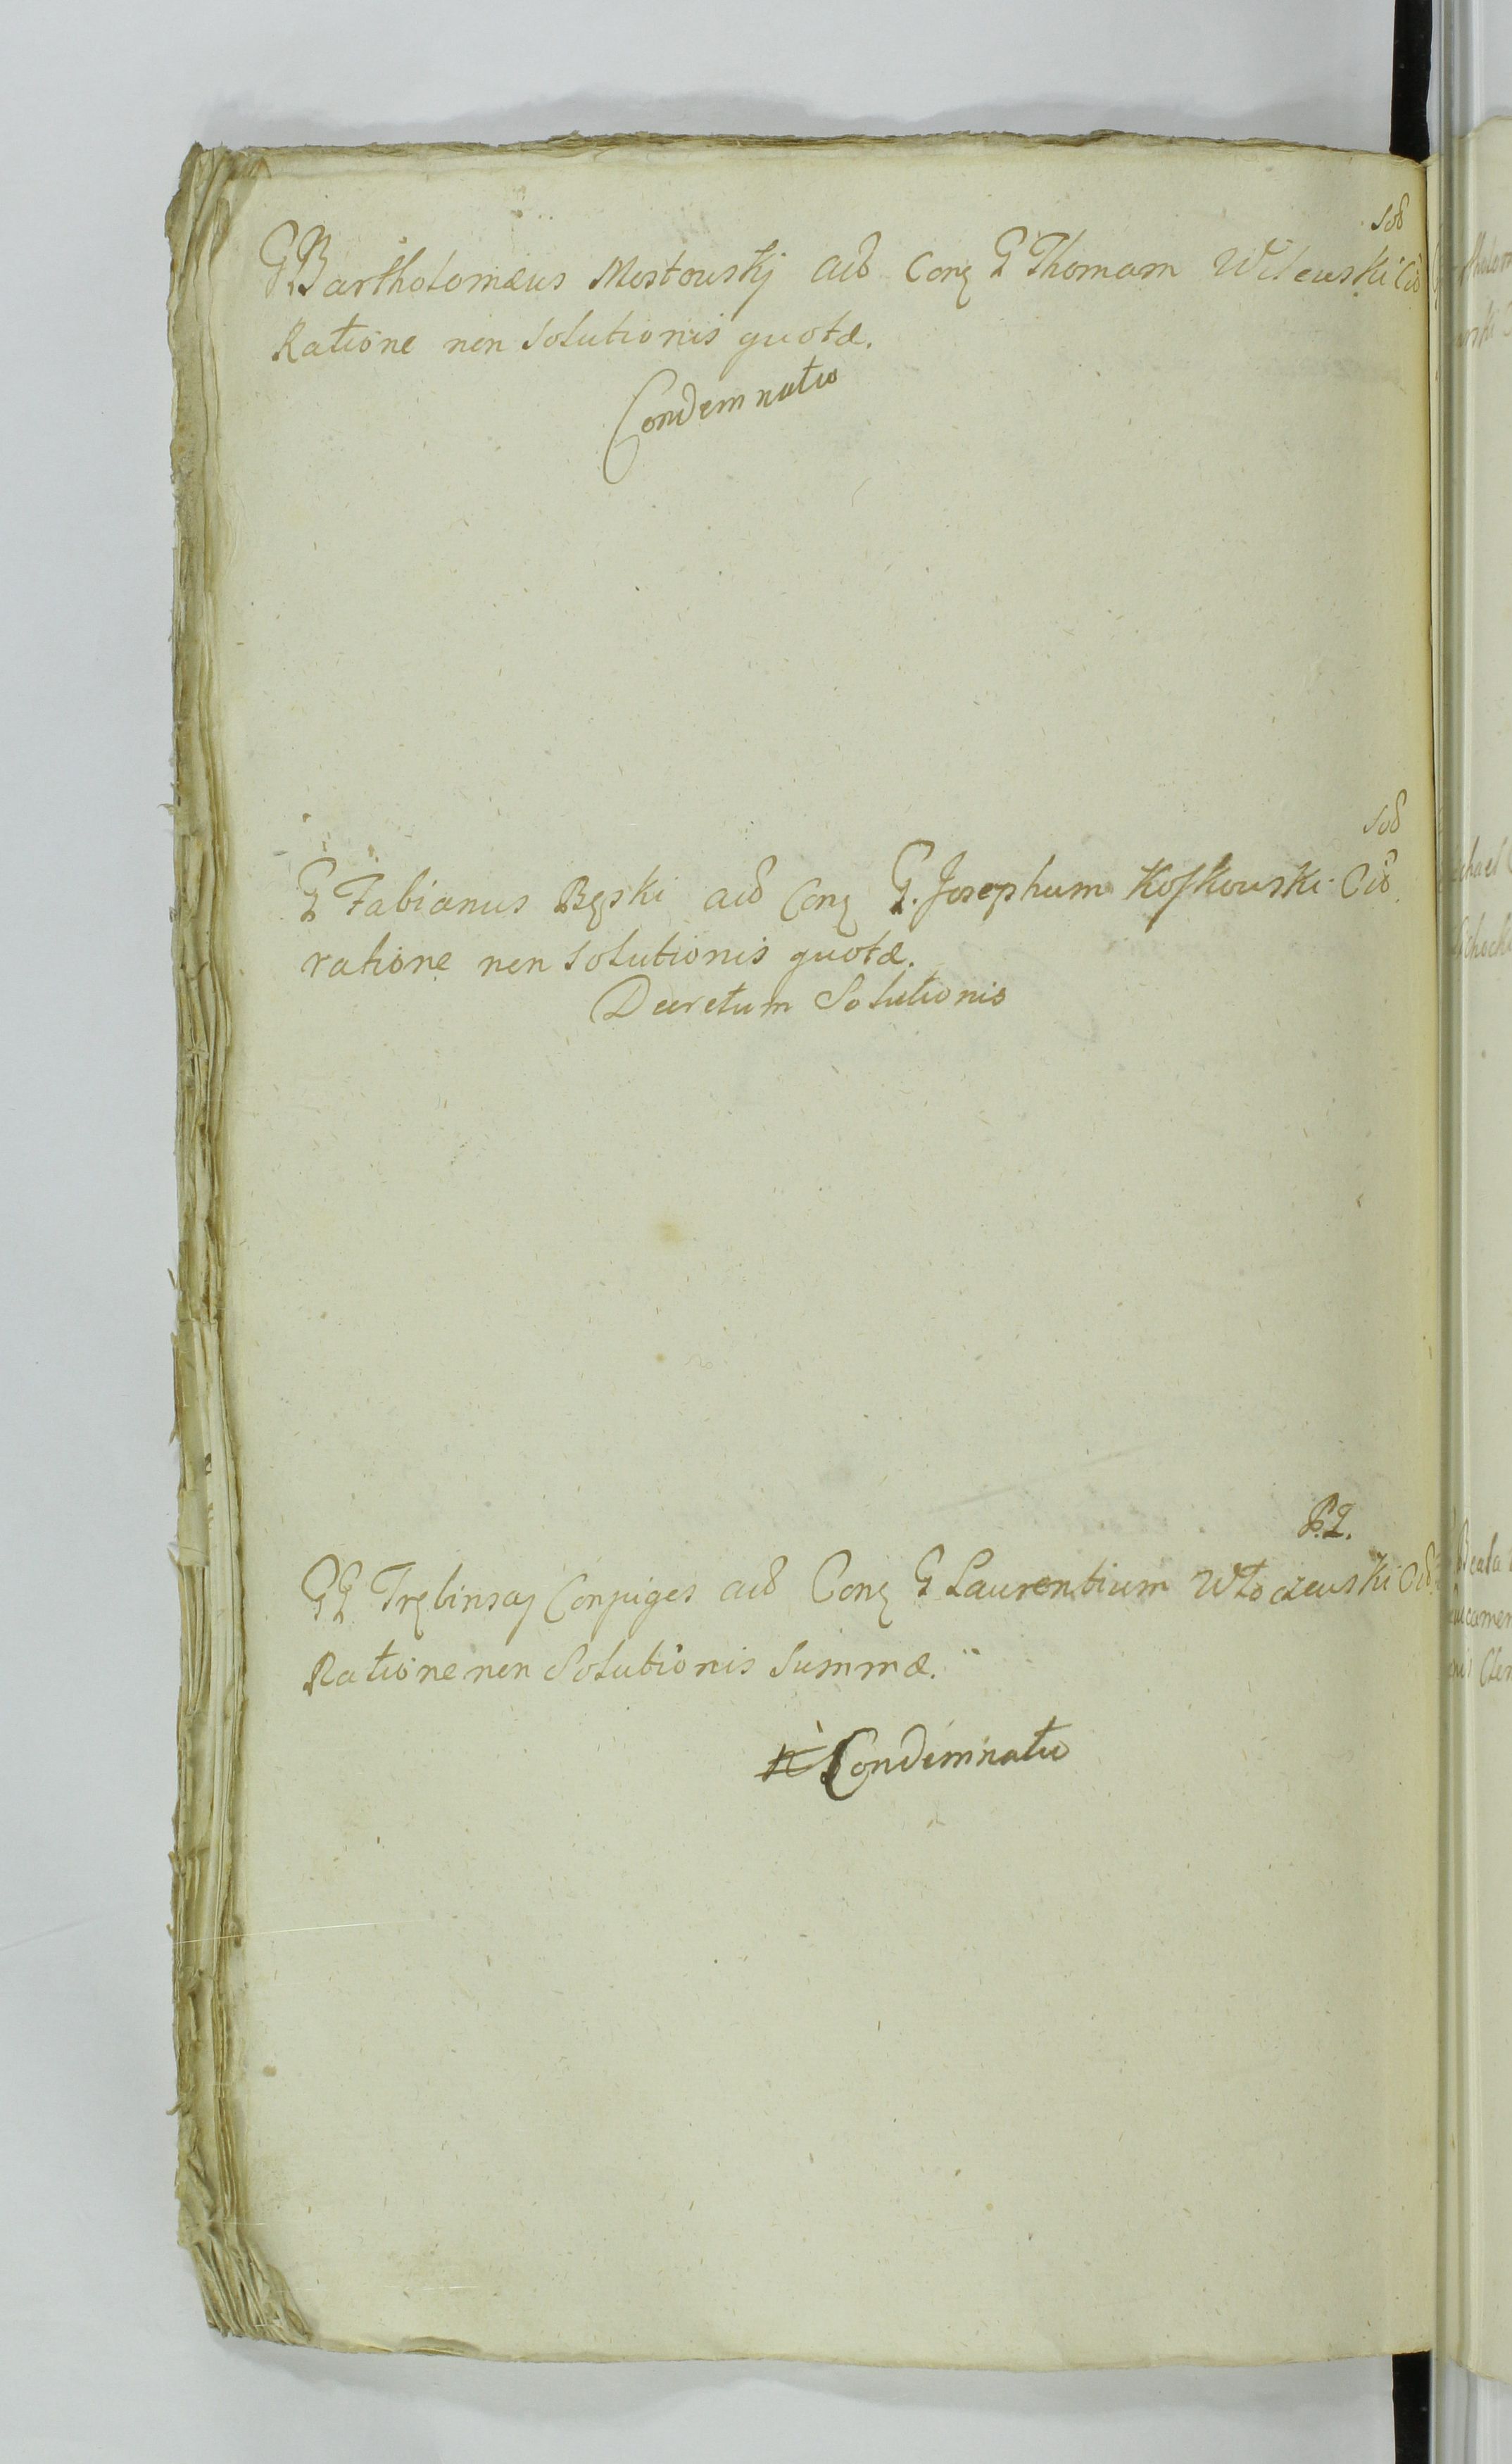 Sob
G Bartholomæus Mostowskj acd Conq G Thomam Wilewski Cid
Ratione non Solutionis quotæ.
Condemnatio
Sob
G Fabianus Bęski acd Conq G. Josephum Koskowski Cid.
ratione non solutionis quotæ.
Decretum Solutionis
P.L.
GG Trębinscy Conjuges acd Conq G Laurentium Włoczewski Cid
Ratione non Solutionis Summæ.
Condemnatio